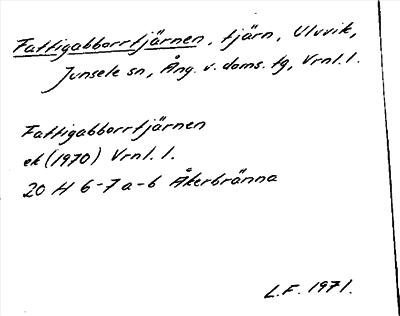 Fattigabborrtjärnen, tjärn, Uluvik,
Junsele sn, Ång. v. doms. tg, Vrnl. l.
Fattigabborrtjärnen
ek (1970) Vrnl. l.
20 H 6-7 a-b Åkerbränna
L.F. 1971.